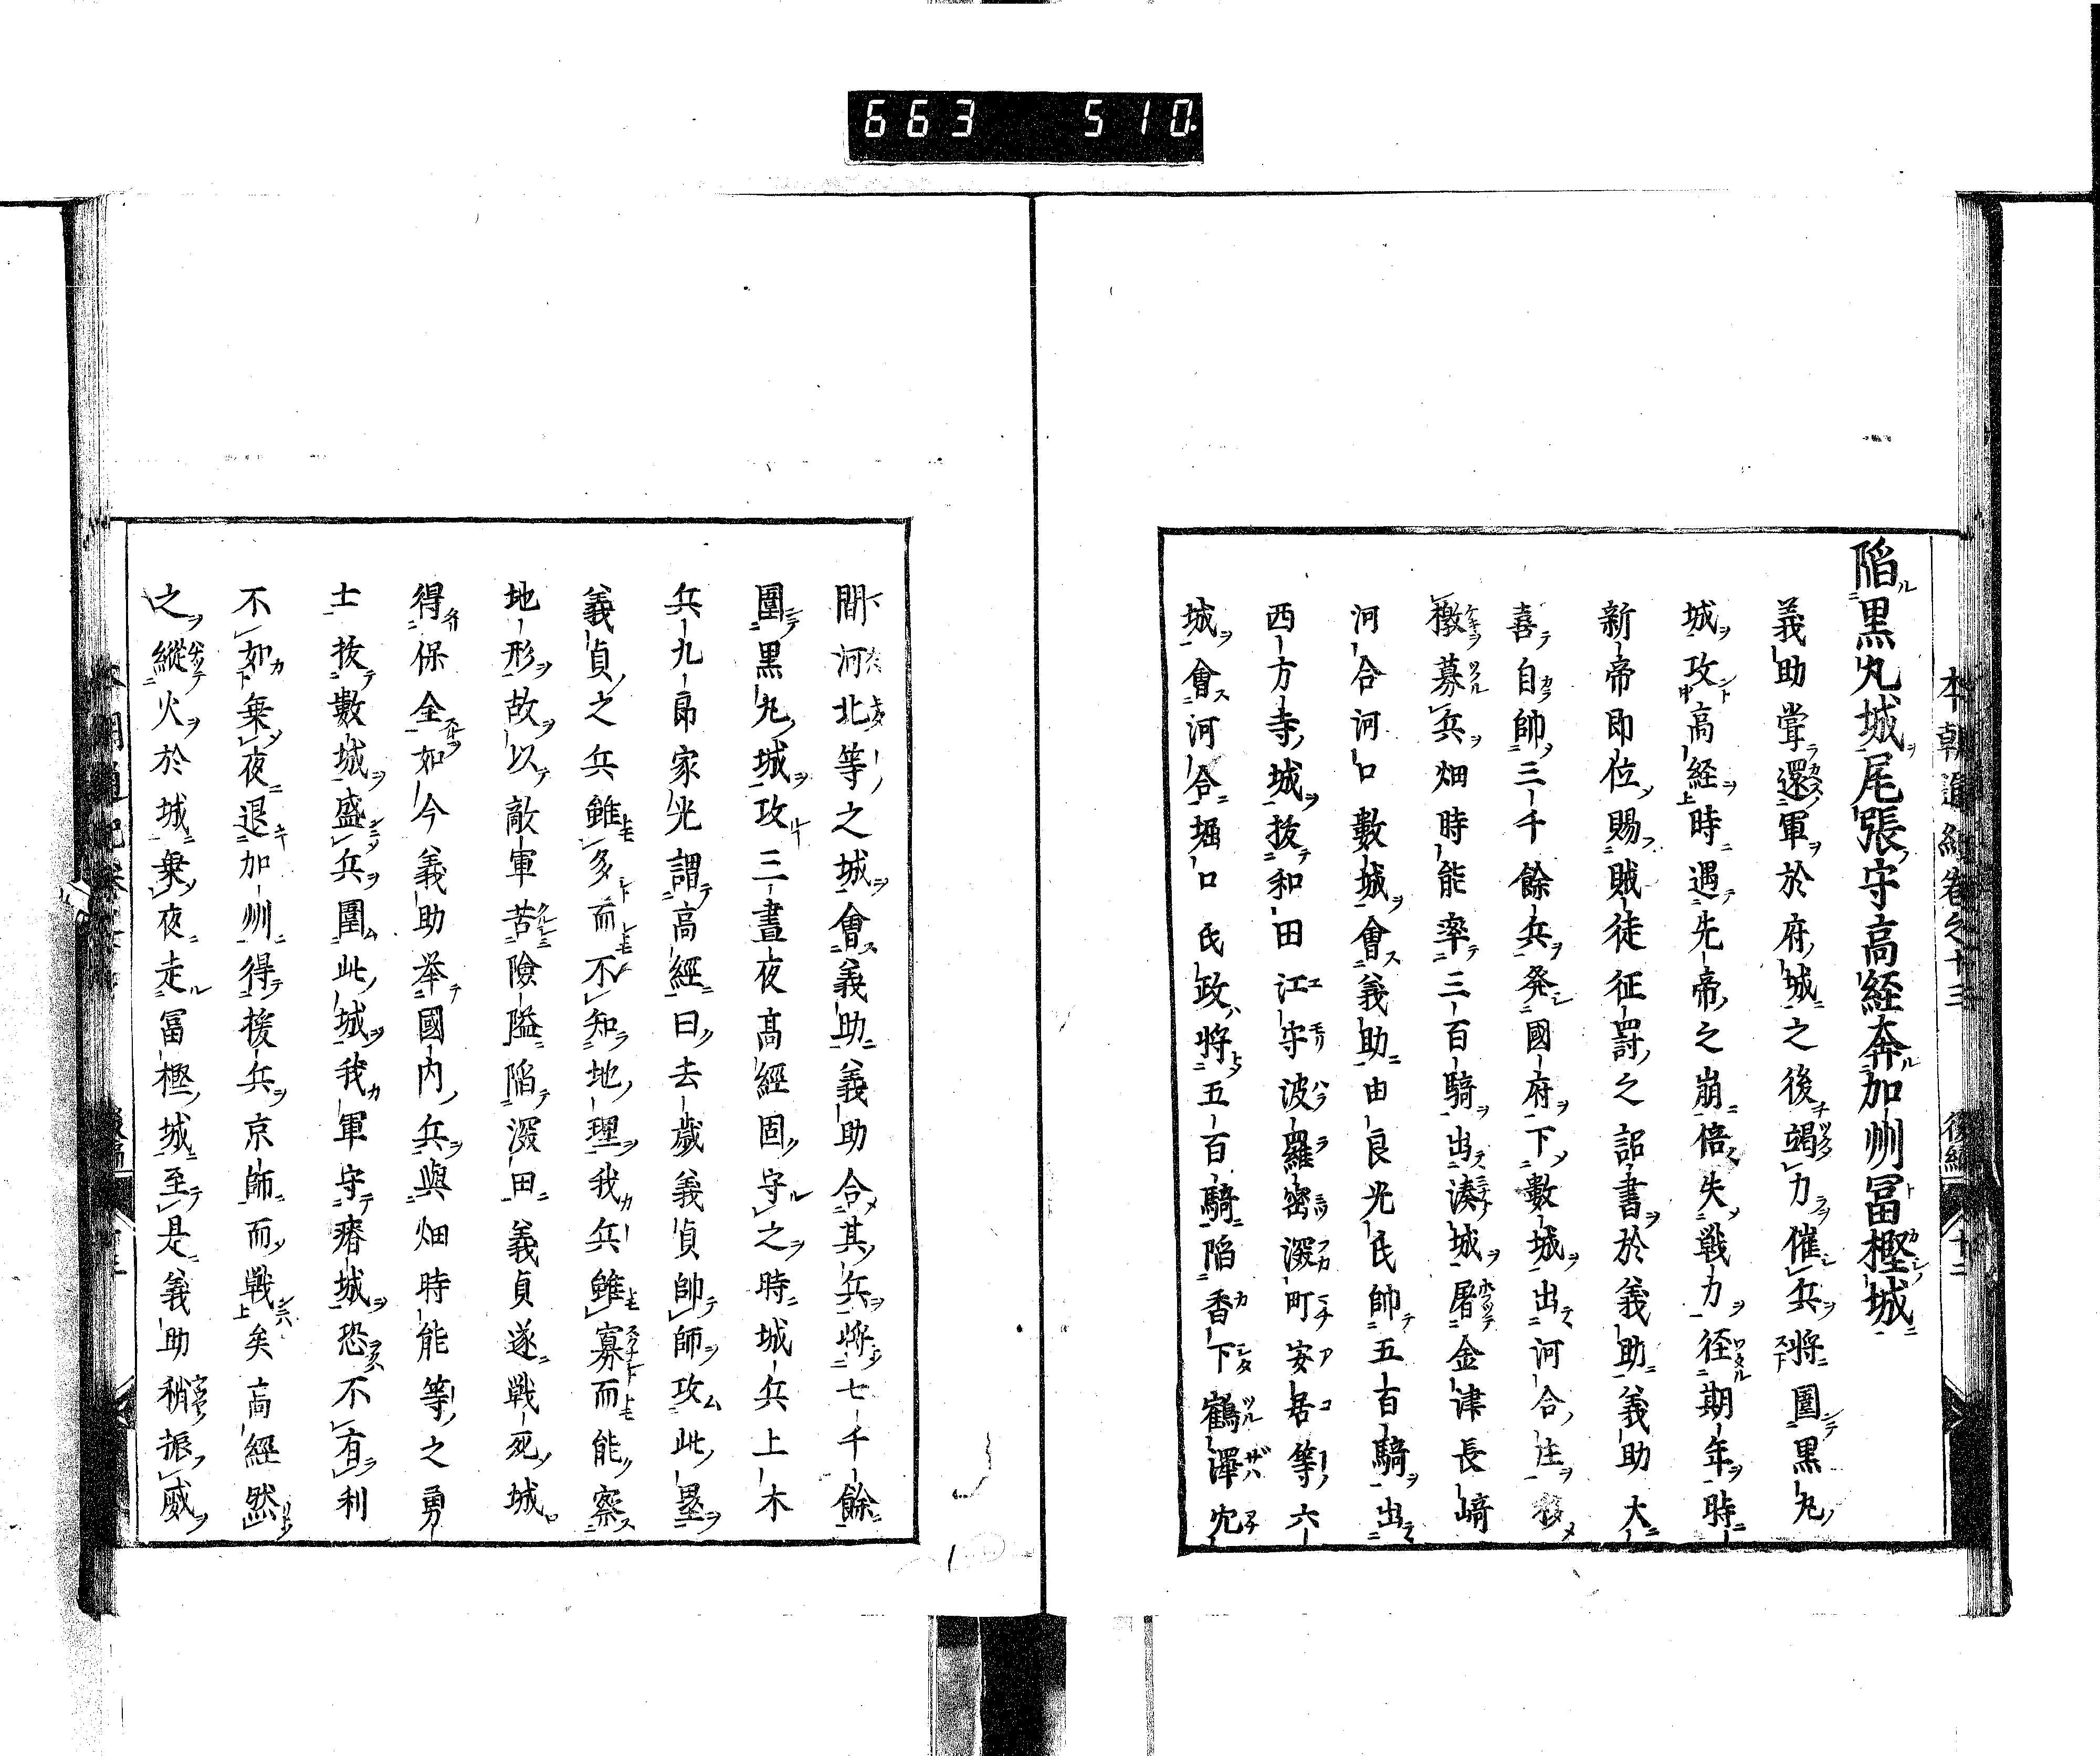 663 510
本朝通紀卷之十三 後編 十二
陷黒丸城尾張守高経奔加州冨樫城
義助甞還軍於府城之後竭力催兵將圍黒丸
城攻高経時遇先帝之崩倍失戦力徑期年時
新帝即位賜賊徒征罸之詔書於義助義助大
喜自帥三千餘兵発國府下數城出河合庄
徵募兵畑時能率三百騎出湊城屠金津長﨑
河合河口數城會義助由良光氏帥五百騎出
西方寺城拔和田江守波羅密深町安居等六
城會河合堀口氏政將五百騎陷香下鶴澤穴
間河北等之城會義助義助合其兵將七千餘
圍黒丸城攻三晝夜高經固守之時城兵上木
兵九郎家光謂高經曰去歳義貞帥師攻此壘
義貞之兵雖多而不知地理我兵雖寡而能察
地形故以敵軍苦險隘陷深田義貞遂戦死城
得保全如今義助举國内兵與畑時能等之勇
士拔數城盛兵圍此城我軍守瘠城恐不有利
不如棄夜退加州得援兵京師而戦矣高經然
之縱火於城棄夜走冨樫城至是義助稍振威